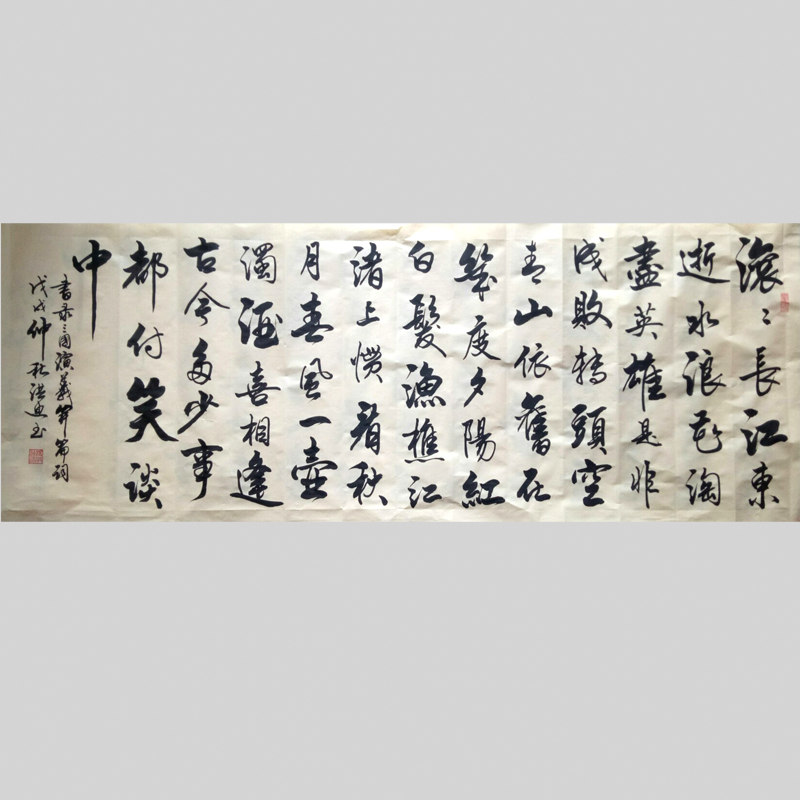 滾〻長江東
逝水浪花淘
盡英雄是非
成敗轉頭空
青山依舊在
幾度夕陽紅
白髮漁樵江
渚上惯看秋
月春風一壺
濁酒喜相逢
古今多少事
都付笑談
中
書录三國演義篇詞
戊戌仲秋洪